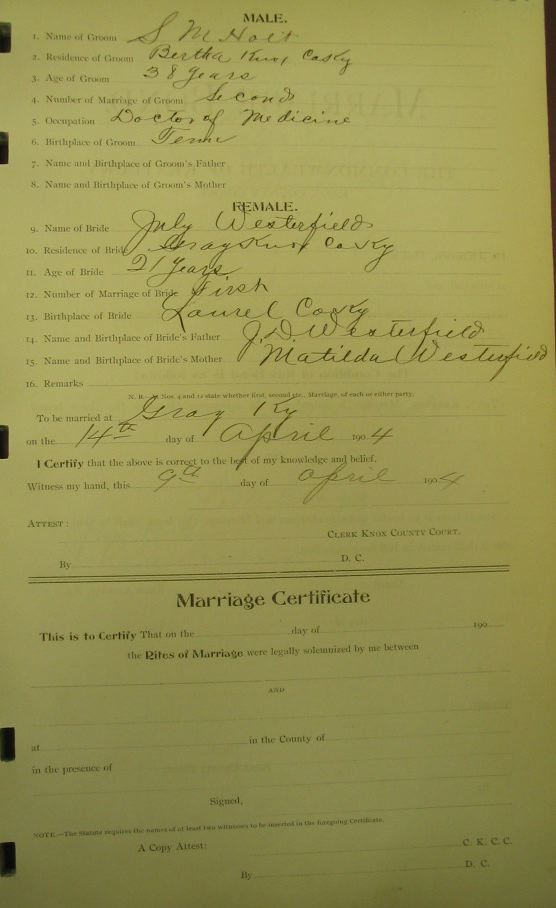 MALE.
1. Name of Groom S M Holt
2. Residence of Groom Bertha Knox Co Ky
3. Age of Groom 38 years
4. Number of Marriage of Groom Second
5. Occupation Doctor of Medicine
6. Birthplace of Groom Tenn
7. Name and Birthplace of Groom's Father
8. Name and Birthplace of Groom's Mother
FEMALE.
9. Name of Bride July Westerfield
10. Residence of Bride Gray Knox Co Ky
11. Age of Bride 21 years
12. Number of Marriage of Bride First
13. Birthplace of Bride Laurel Co Ky
14. Name and Birthplace of Bride's Father J. D Westerfield
15. Name and Birthplace of Bride's Mother Matilda Westerfield
16. Remarks
N. B.—At Nos. 4 and 12 state whether first, second etc., Marriage, of each or either party.
To be married at Gray Ky
on the 14th day of April 1904
I Certify that the above is correct to the best of my knowledge and belief.
Witness my hand, this 9th day of April 1904
ATTEST:
CLERK KNOX COUNTY COURT.
By D. C.
Marriage Certificate
This is to Certify That on the day of 190
the Rites of Marriage were legally solemnized by me between
AND
at in the County of
in the presence of
Signed,
NOTE.—The Statute requires the names of at least two witnesses to be inserted in the foregoing Certificate.
A Copy Attest: C. K. C. C.
By D. C.